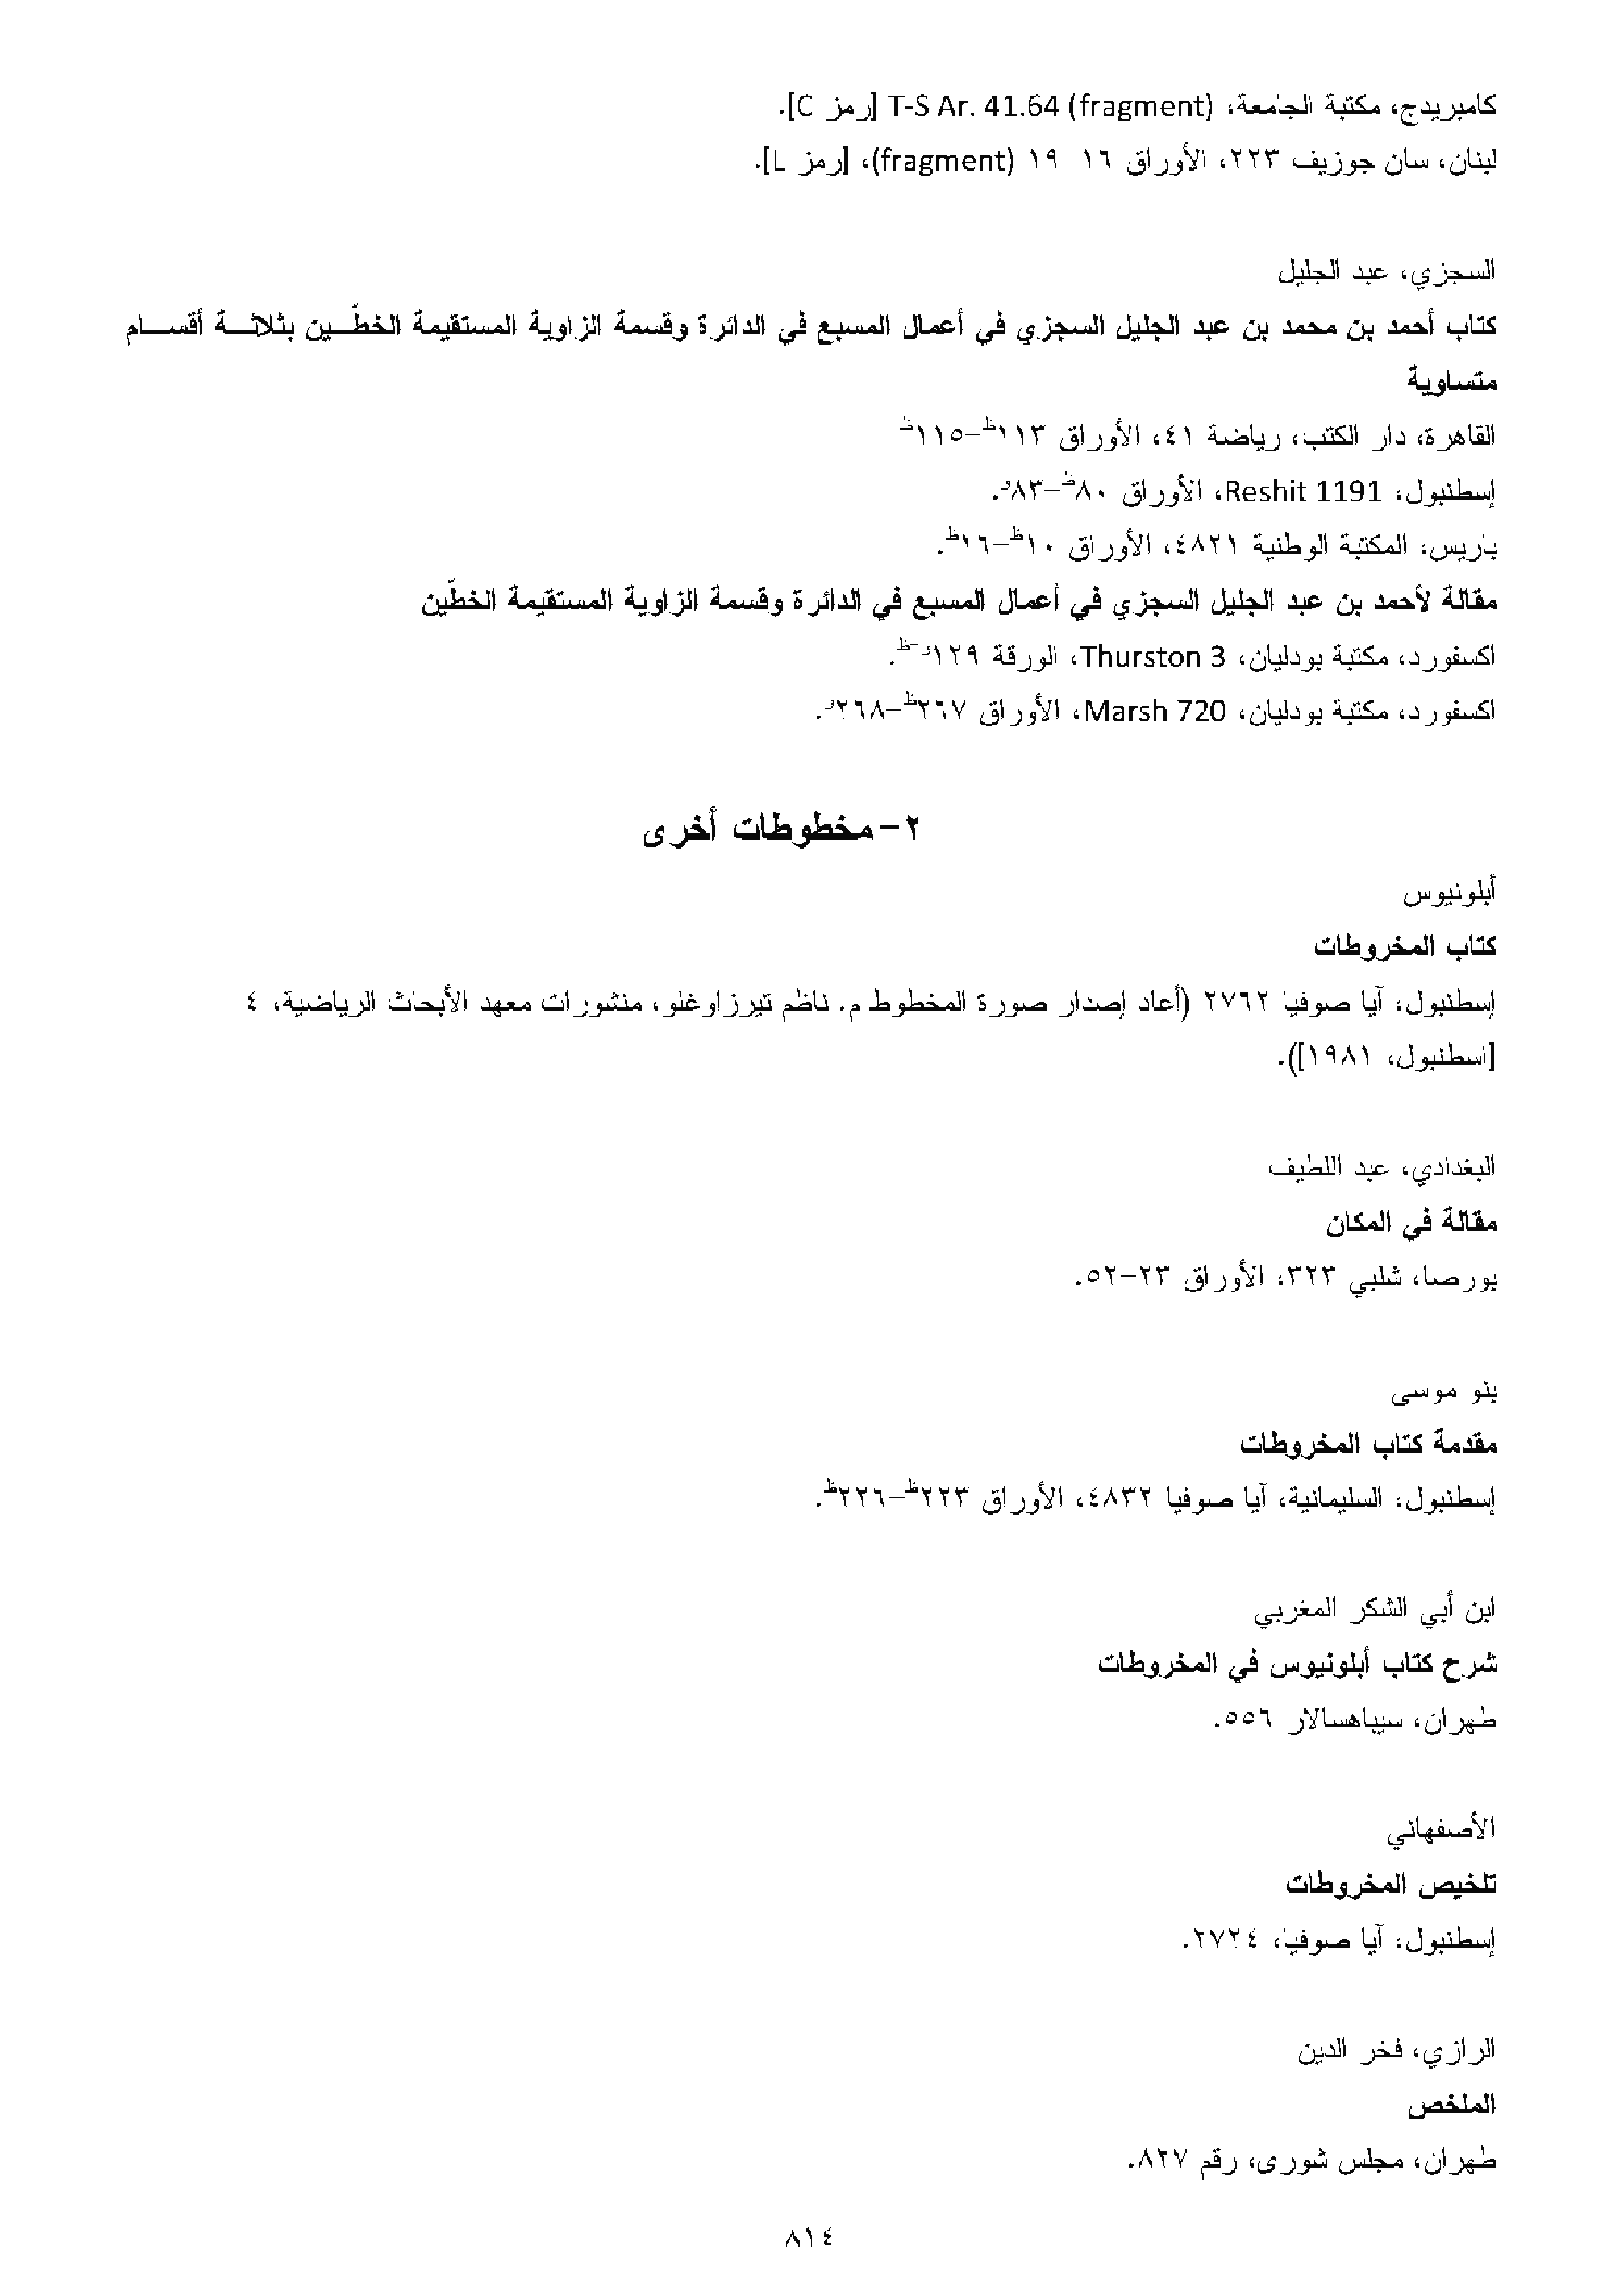 كامبريدج، مكتبة الجامعة، T-S Ar. 41.64 (fragment) [رمز C].
لبنان، سان جوزيف ٢٢٣، الأوراق ١٦-١٩ (fragment)، [رمز L].
السجزي، عبد الجليل
كتاب أحمد بن محمد بن عبد الجليل السجزي في أعمال المسبع في الدائرة وقسمة الزاوية المستقيمة الخطّـــين بثلاثـــة أقســـام
متساوية
القاهرة، دار الكتب، رياضة ٤١، الأوراق ١١٣ظ-١١٥ظ
إسطنبول، Reshit 1191، الأوراق ٨٠ظ-٨٣و.
باريس، المكتبة الوطنية ٤٨٢١، الأوراق ١٠ظ-١٦ظ.
مقالة لأحمد بن عبد الجليل السجزي في أعمال المسبع في الدائرة وقسمة الزاوية المستقيمة الخطّين
اكسفورد، مكتبة بودليان، Thurston 3، الورقة ١٢٩و-ظ.
اكسفورد، مكتبة بودليان، Marsh 720، الأوراق ٢٦٧ظ-٢٦٨و.
٢- مخطوطات أخرى
أبلونيوس
كتاب المخروطات
إسطنبول، آيا صوفيا ٢٧٦٢ (أعاد إصدار صورة المخطوط م. ناظم تيرزاوغلو، منشورات معهد الأبحاث الرياضية، ٤
[اسطنبول، ١٩٨١]).
البغدادي، عبد اللطيف
مقالة في المكان
بورصا، شلبي ٣٢٣، الأوراق ٢٣-٥٢.
بنو موسى
مقدمة كتاب المخروطات
إسطنبول، السليمانية، آيا صوفيا ٤٨٣٢، الأوراق ٢٢٣ظ-٢٢٦ظ.
ابن أبي الشكر المغربي
شرح كتاب أبلونيوس في المخروطات
طهران، سيباهسالار ٥٥٦.
الأصفهاني
تلخيص المخروطات
إسطنبول، آيا صوفيا، ٢٧٢٤.
الرازي، فخر الدين
الملخص
طهران، مجلس شورى، رقم ٨٢٧.
٨١٤